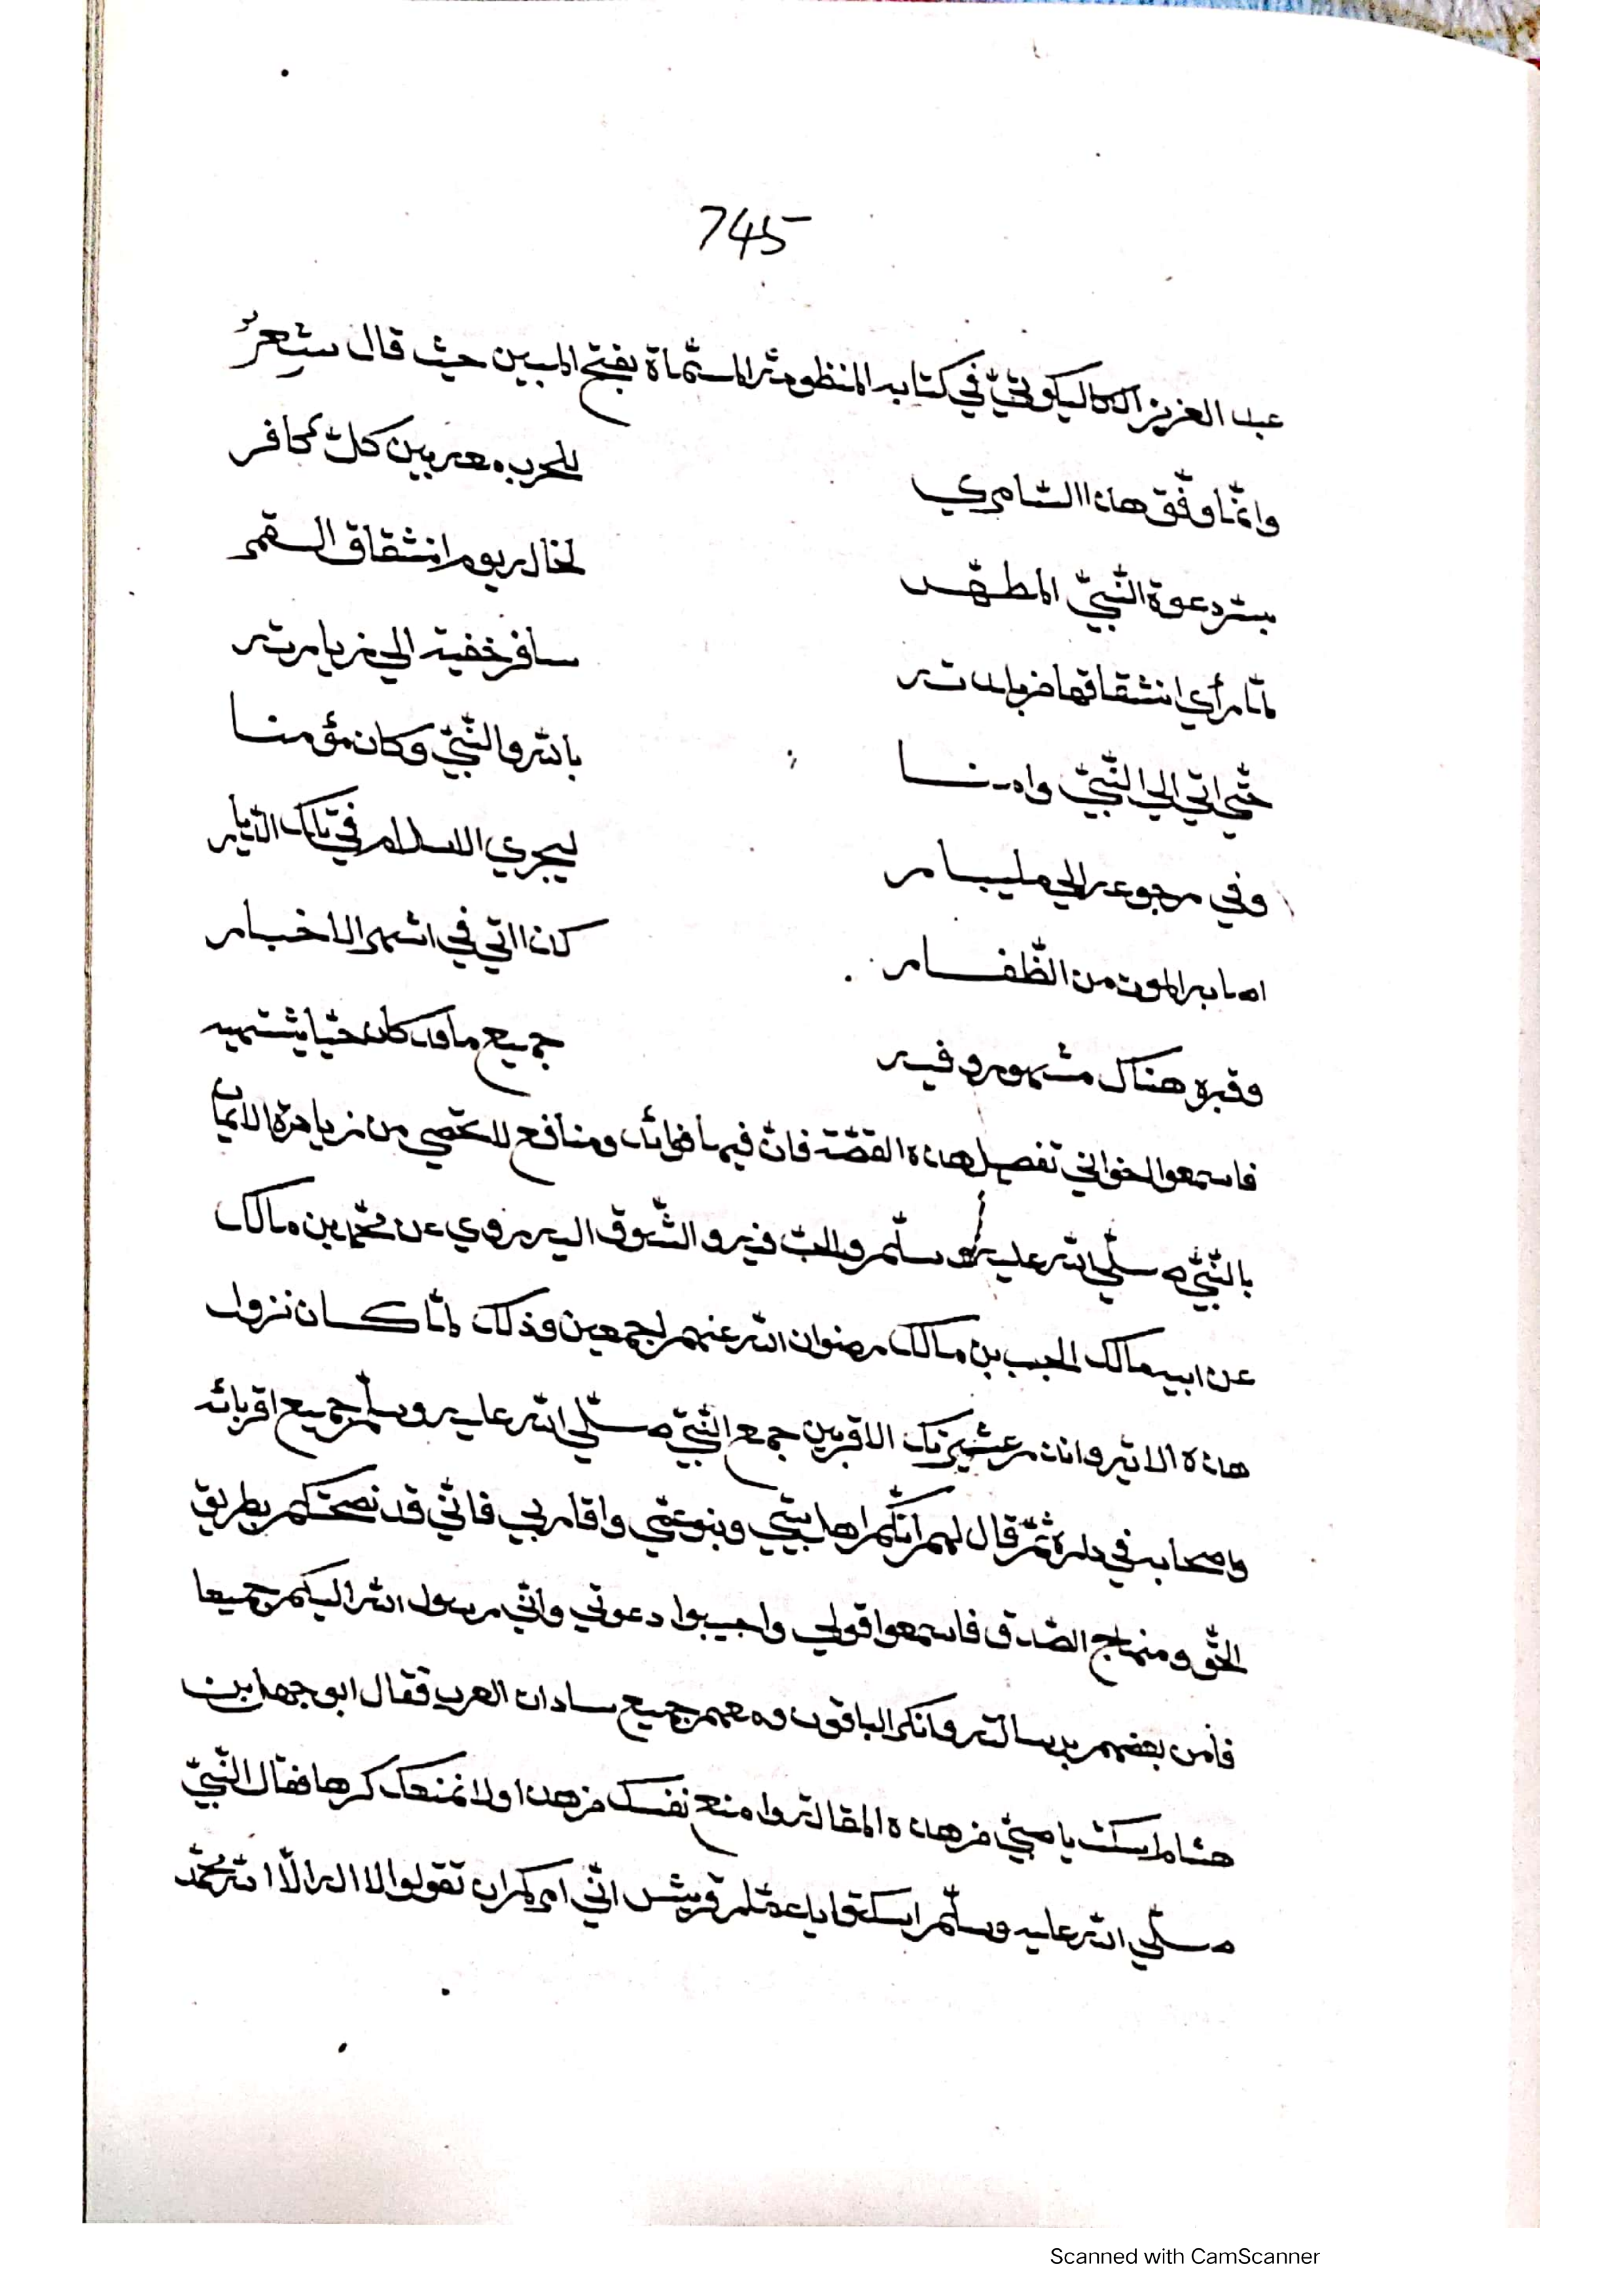 745
عبد العزيز الكاليكوتيّ في كتابه المنظومة المسمّاة بفتح المبين حيث قال شعرٌ
وانّما وفّق هذا السّامري للحرب معه بين كلّ كافر
بسرّ دعوة النّبيّ المطهّر لخاله يوم انشقاق القمر
لمّا رأى انشقاقها في بلدته سافر خفية الى زيارته
حتّى اتى الى النّبيّ وامنا بالله والنّبيّ وكان مؤمنا
وفي رجوعه الى مليبار ليجري الاسلام في تلك الدّيار
اصابه الموت من الظّفار كذا اتي في اشهر الاخبار
وقبره هناك مشهور وفيه جميع ما قد كان حيّا يشتهيه
فاسمعوا اخواني تفصيل هذه القصّة فانّ فيها فوائد ومنافع لا تحصي من زيادة الايمان
بالنّبيّ صلّي الله عليه وسلّم والحبّ فيه والشّوق اليه روي عن محمّد بن مالك
عن ابيه مالك الحبيب بن مالك رضوان الله عنهم اجمعين وذلك لمّا كان نزول
هذه الاية وانذر عشيرتك الاقربين جمع النّبيّ صلّي الله عليه وسلّم جميع اقربائه
واصحابه في داره ثمّ قال لهم انّكم اهل بيتي وبنو عمّي واقاربي فانّي قد نصحتكم بطريق
الحقّ ومنهاج الصّدق فاسمعوا قولي واجيبوا دعوتي وانّي رسول الله اليكم جميعا
فآمن بعضهم برسالته وانكر الباقون ومعهم جميع سادات العرب فقال ابو جهل بن
هشام اسكت يا صبيّ من هذه المقالة وامنع نفسك من هذا ولا نمنعك كرها فقال النّبيّ
صلّي الله عليه وسلّم اسكتوا يا قريش انّي امركم ان تقولوا لا اله الّا الله محمّد
Scanned with CamScanner